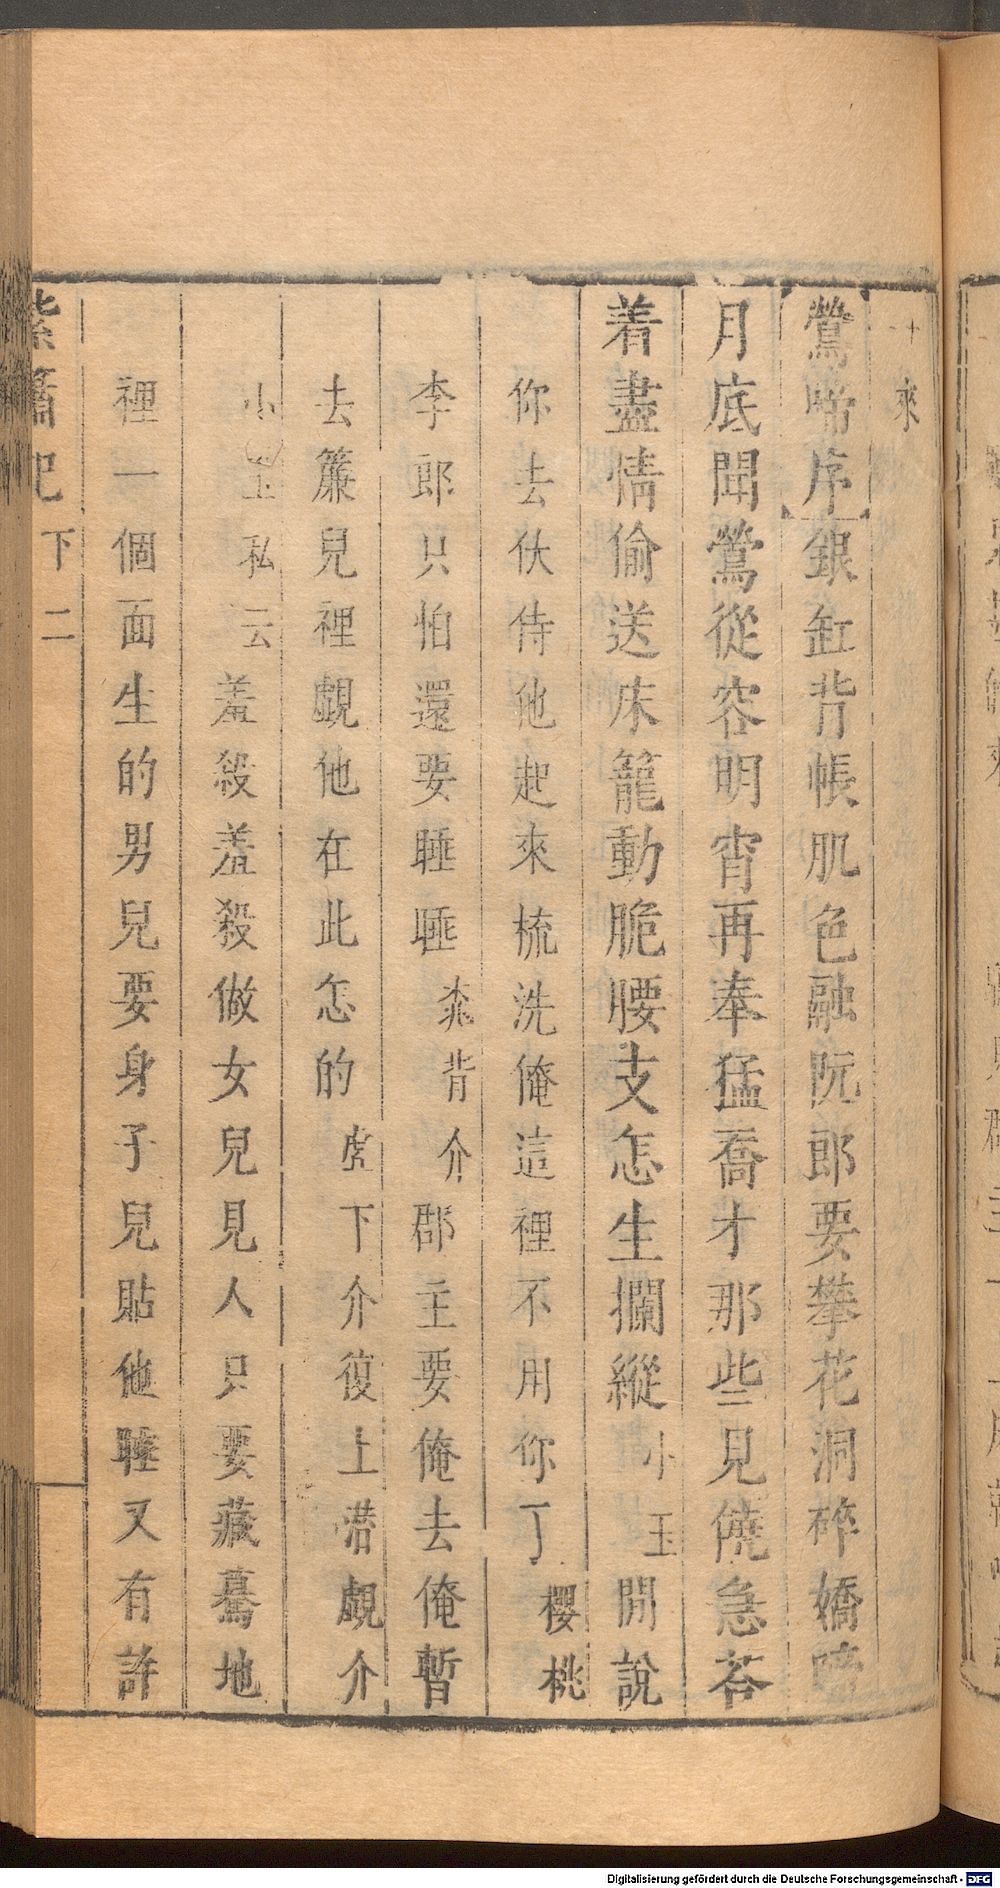 來
鶯啼序銀缸背帳肌色融阮郎要攀花洞碎嬌啼
月底聞鶯從容明宵再奉猛喬才那些見僥急荅
着盡情偷送床籠動脆腰支怎生攔縱小玉開說
你去伏侍他起來梳洗俺這裡不用你了櫻桃
李郎只怕還要睡睡桃背介郡主要俺去俺暫
去簾兒裡覷他在此怎的虛下介復上潜覷介
小玉私云羞殺羞殺做女兒見人只要藏驀地
裡一個面生的男兒要身子兒貼他睡又有許
紫簫記 下 二
Digitalisierung gefördert durch die Deutsche Forschungsgemeinschaft - DFG